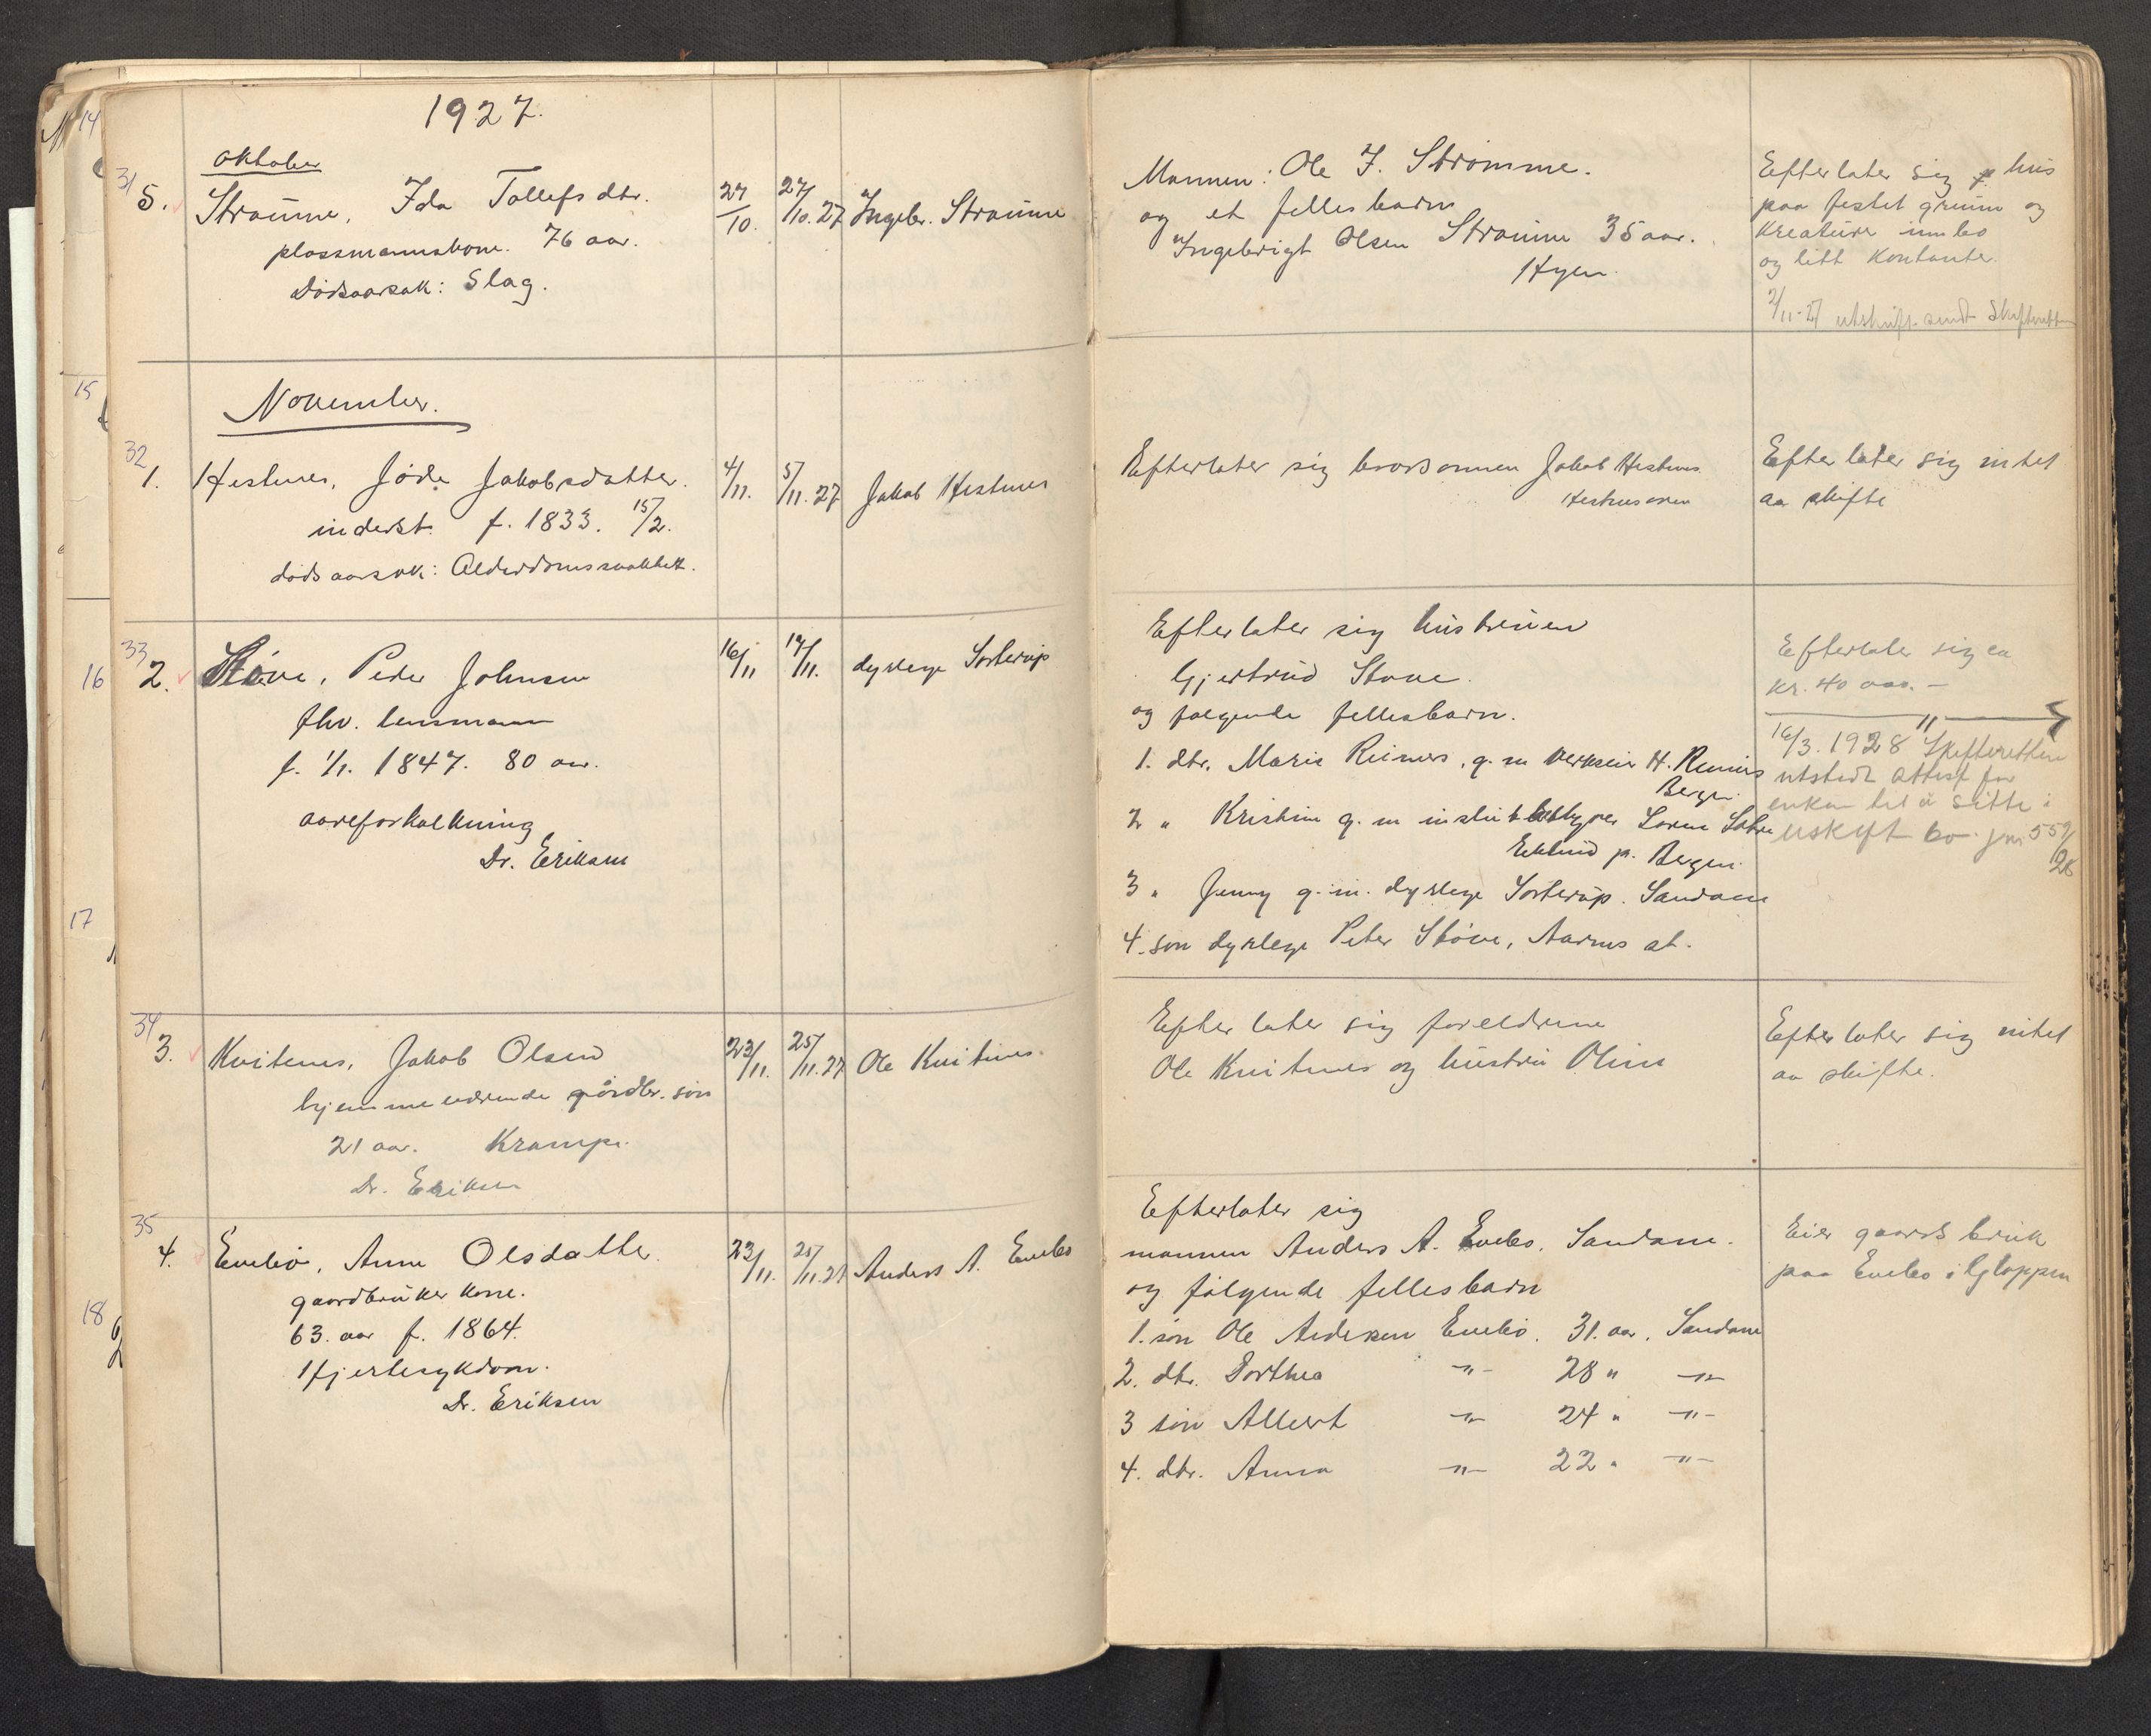 1927.
Oktober
31
5. Straume, Ida Tollefsdtr. 24/10. 27/10.27 Ingebr. Straume
plassmannskone. 76 aar.
Dødsaarsak: Slag.
Mannen: Ole J. Strømme.
og et fellesbarn
Ingebrigt Olsen Straume 35 aar.
Hyen.
Efterlater sig hus
paa festet grunn og
Kreature innbo
og litt Kontanter.
2/11-27 utskrift sendt Skifteretten
November.
32
1. Hestnes, Jøde Jakobsdatter. 4/11. 5/11.27 Jakob Hestnes
inderst f. 1833. 15/2.
dødsaarsak: Alderdomssvakhet.
Efterlater sig brorsønnen Jakob Hestnes
Efterlater sig intet
aa skifte
33
2. Støve, Peder Johnsen 16/11 17/11. dyrlege Sorterup
fhv. lensmann
f. 1/1. 1847. 80 aar.
aareforkalkning
Dr. Eriksen
Efterlater sig hustruen
Gjertrud Støve.
og følgende fellesbarn.
1. dtr. Marie Reimers, g. m H. Reimers
Bergen.
2 " Kristine g. m
p. Bergen.
3 " Jenny g. m. dyrlege Sorterup. Sandane
4. søn dyrlege Peter Støve, Aarnes st.
Efterlater sig ca
kr. 40 000.-
"
16/3. 1928 Skifteretten
utstedt attest for
enken til å sitte i
uskift bo. jnr 559/
28
34
3. Kvitenes, Jakob Olsen 23/11. 25/11.27 Ole Kvitenes.
hjemmeværende gårdbr. søn
21 aar. Krampe.
Dr. Eriksen
Efterlater sig foreldrene
Ole Kvitenes og hustru Oline
Efterlater sig intet
aa skifte.
35
4. Evebø, Anne Olsdatter. 23/11. 25/11.27 Anders A. Evebø
gaardbruker kone.
63. aar f. 1864.
Hjertesykdom.
Dr. Eriksen
Efterlater sig
mannen Anders A. Evebø. Sandane.
og følgende fellesbarn
1. søn Ole Andersen Evebø. 31. aar. Sandane
2. dtr. Dorthea -"- 28 " -"-
3 søn Albert -"- 24 " -"-
4. dtr. Anna -"- 22 " -"-
Eier gaardsbruk
paa Evebø i Gloppen
14
15
16
17
18